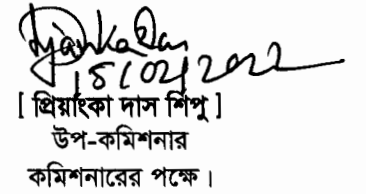 15/02/2022
[ প্রিয়াংকা দাস শিপু ]
উপ-কমিশনার
কমিশনারের পক্ষে।